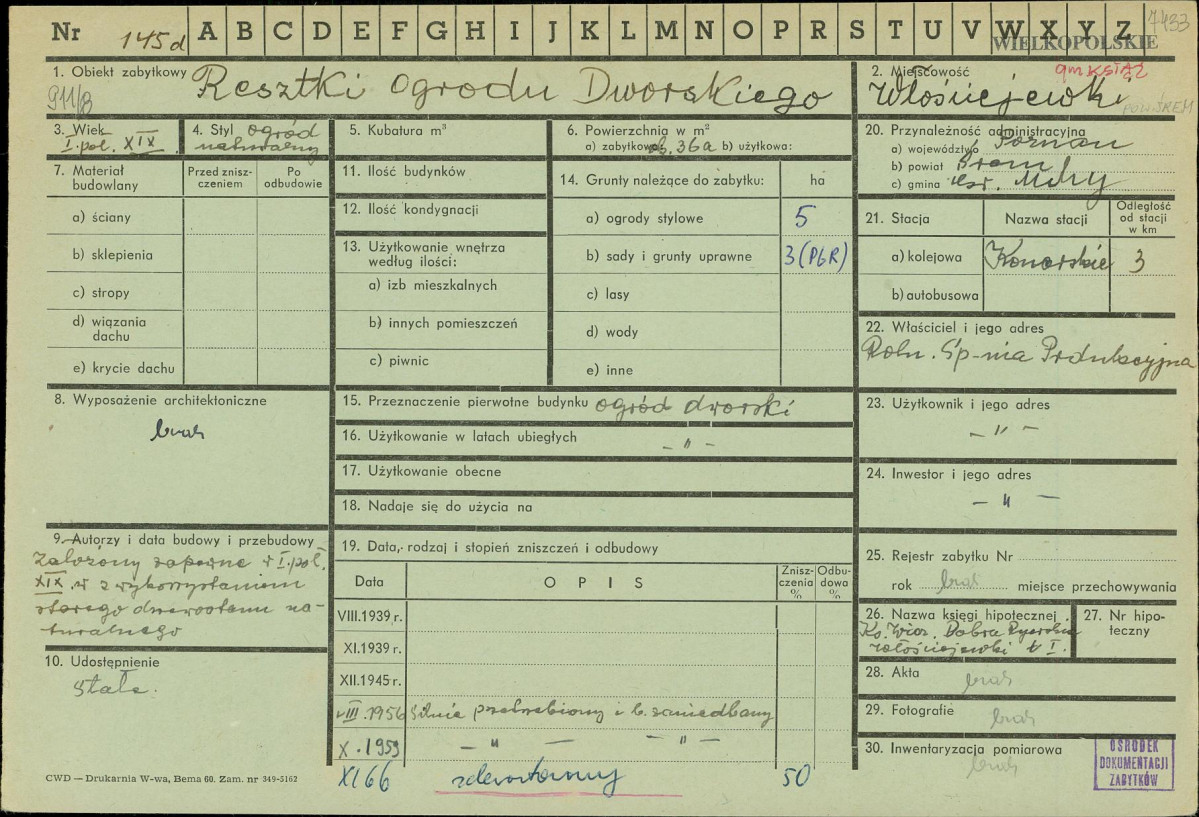 Nr 145d A B C D E F G H I J K L M N O P R S T U V W X Y Z 7433
WIELKOPOLSKIE
1. Obiekt zabytkowy Resztki Ogrodu Dworskiego
911/8
2. Miejscowość gm KSIĄŻ
Włościejewki
3. Wiek
I. poł. XIX
4. Styl ogród
naturalny
5. Kubatura m³
6. Powierzchnia w m²
a) zabytkowa 36a b) użytkowa:
7. Materiał budowlany
Przed zniszczeniem
Po odbudowie
a) ściany
b) sklepienia
c) stropy
d) wiązania dachu
e) krycie dachu
11. Ilość budynków
12. Ilość kondygnacji
13. Użytkowanie wnętrza
według ilości:
a) izb mieszkalnych
b) innych pomieszczeń
c) piwnic
14. Grunty należące do zabytku: ha
a) ogrody stylowe 5
b) sady i grunty uprawne 3 (PGR)
c) lasy
d) wody
e) inne
20. Przynależność administracyjna
a) województwo Poznań
b) powiat Śrem
c) gmina Mchy
21. Stacja
Nazwa stacji
Odległość od stacji w km
a) kolejowa Konarskie 3
b) autobusowa
22. Właściciel i jego adres
Roln. Sp-nia Produkcyjna
8. Wyposażenie architektoniczne
brak
15. Przeznaczenie pierwotne budynku ogród dworski
16. Użytkowanie w latach ubiegłych – " –
17. Użytkowanie obecne
18. Nadaje się do użycia na
23. Użytkownik i jego adres
– " –
24. Inwestor i jego adres
– " –
9. Autorzy i data budowy i przebudowy
założony zapewne w I. poł.
XIX. w z wykorzystaniem
starego drzewostanu na-
turalnego
10. Udostępnienie
stałe.
19. Data, rodzaj i stopień zniszczeń i odbudowy
Data OPIS Zniszczenia % Odbudowa %
VIII.1939 r.
XI.1939 r.
XII.1945 r.
VIII.1956 silnie przetrzebiony i b. zaniedbany
X.1959 – " – – " –
XI 66 zdewastowany 50
25. Rejestr zabytku Nr
rok brak miejsce przechowywania
26. Nazwa księgi hipotecznej
Ks. Wiecz. Dobra Rycerskie
Włościejewki t I.
27. Nr hipoteczny
28. Akta brak
29. Fotografie brak
30. Inwentaryzacja pomiarowa
brak
OŚRODEK
DOKUMENTACJI
ZABYTKÓW
CWD — Drukarnia W-wa, Bema 60. Zam. nr 349-5162